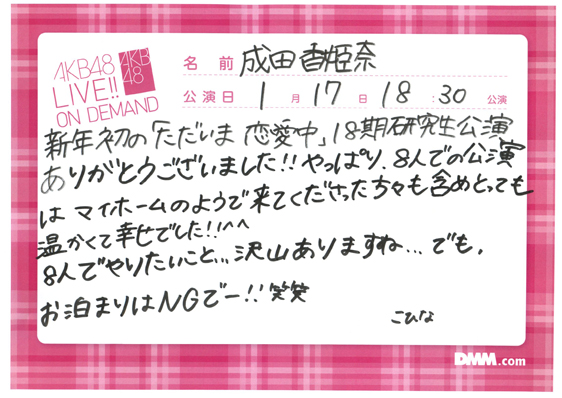 AKB48
LIVE!!
ON DEMAND
AKB
48
名前 成田香姫奈
公演日 1月17日 18:30 公演
新年初の「ただいま 恋愛中」18期研究生公演
ありがとうございました!! やっぱり、8人での公演
は マイホームのようで来てくださった方々も含めとっても
温かくて幸せでした!!^^
8人でやりたいこと... 沢山ありますね... でも、
お泊まりはNGでー!! 笑笑
こひな
DMM.com